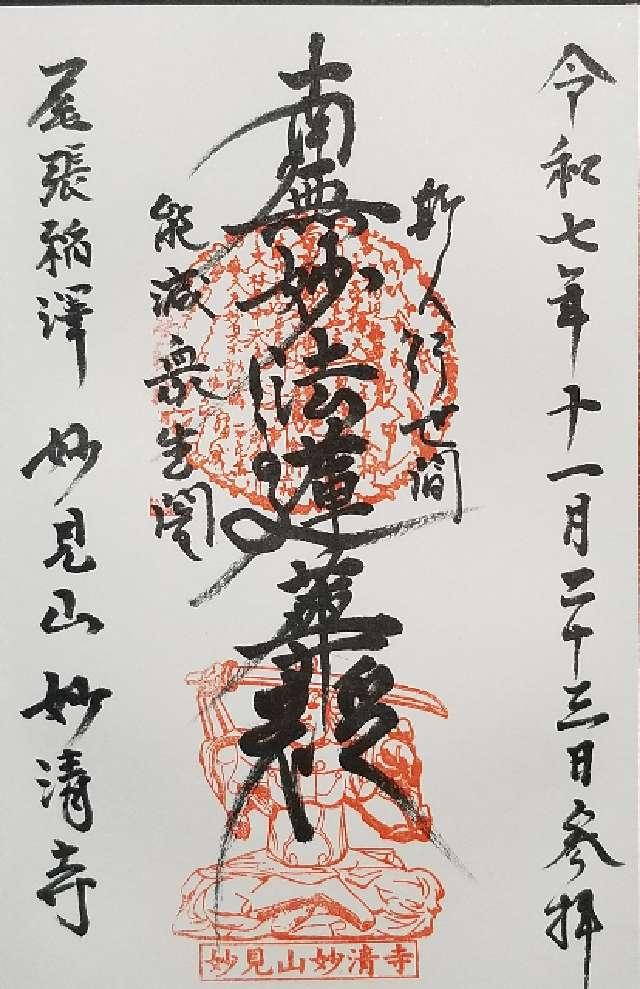 令和七年十一月二十三日参拝
斯人行世間
南無妙法蓮華経
能滅衆生闇
尾張稲澤 妙見山 妙清寺
妙見山妙清寺